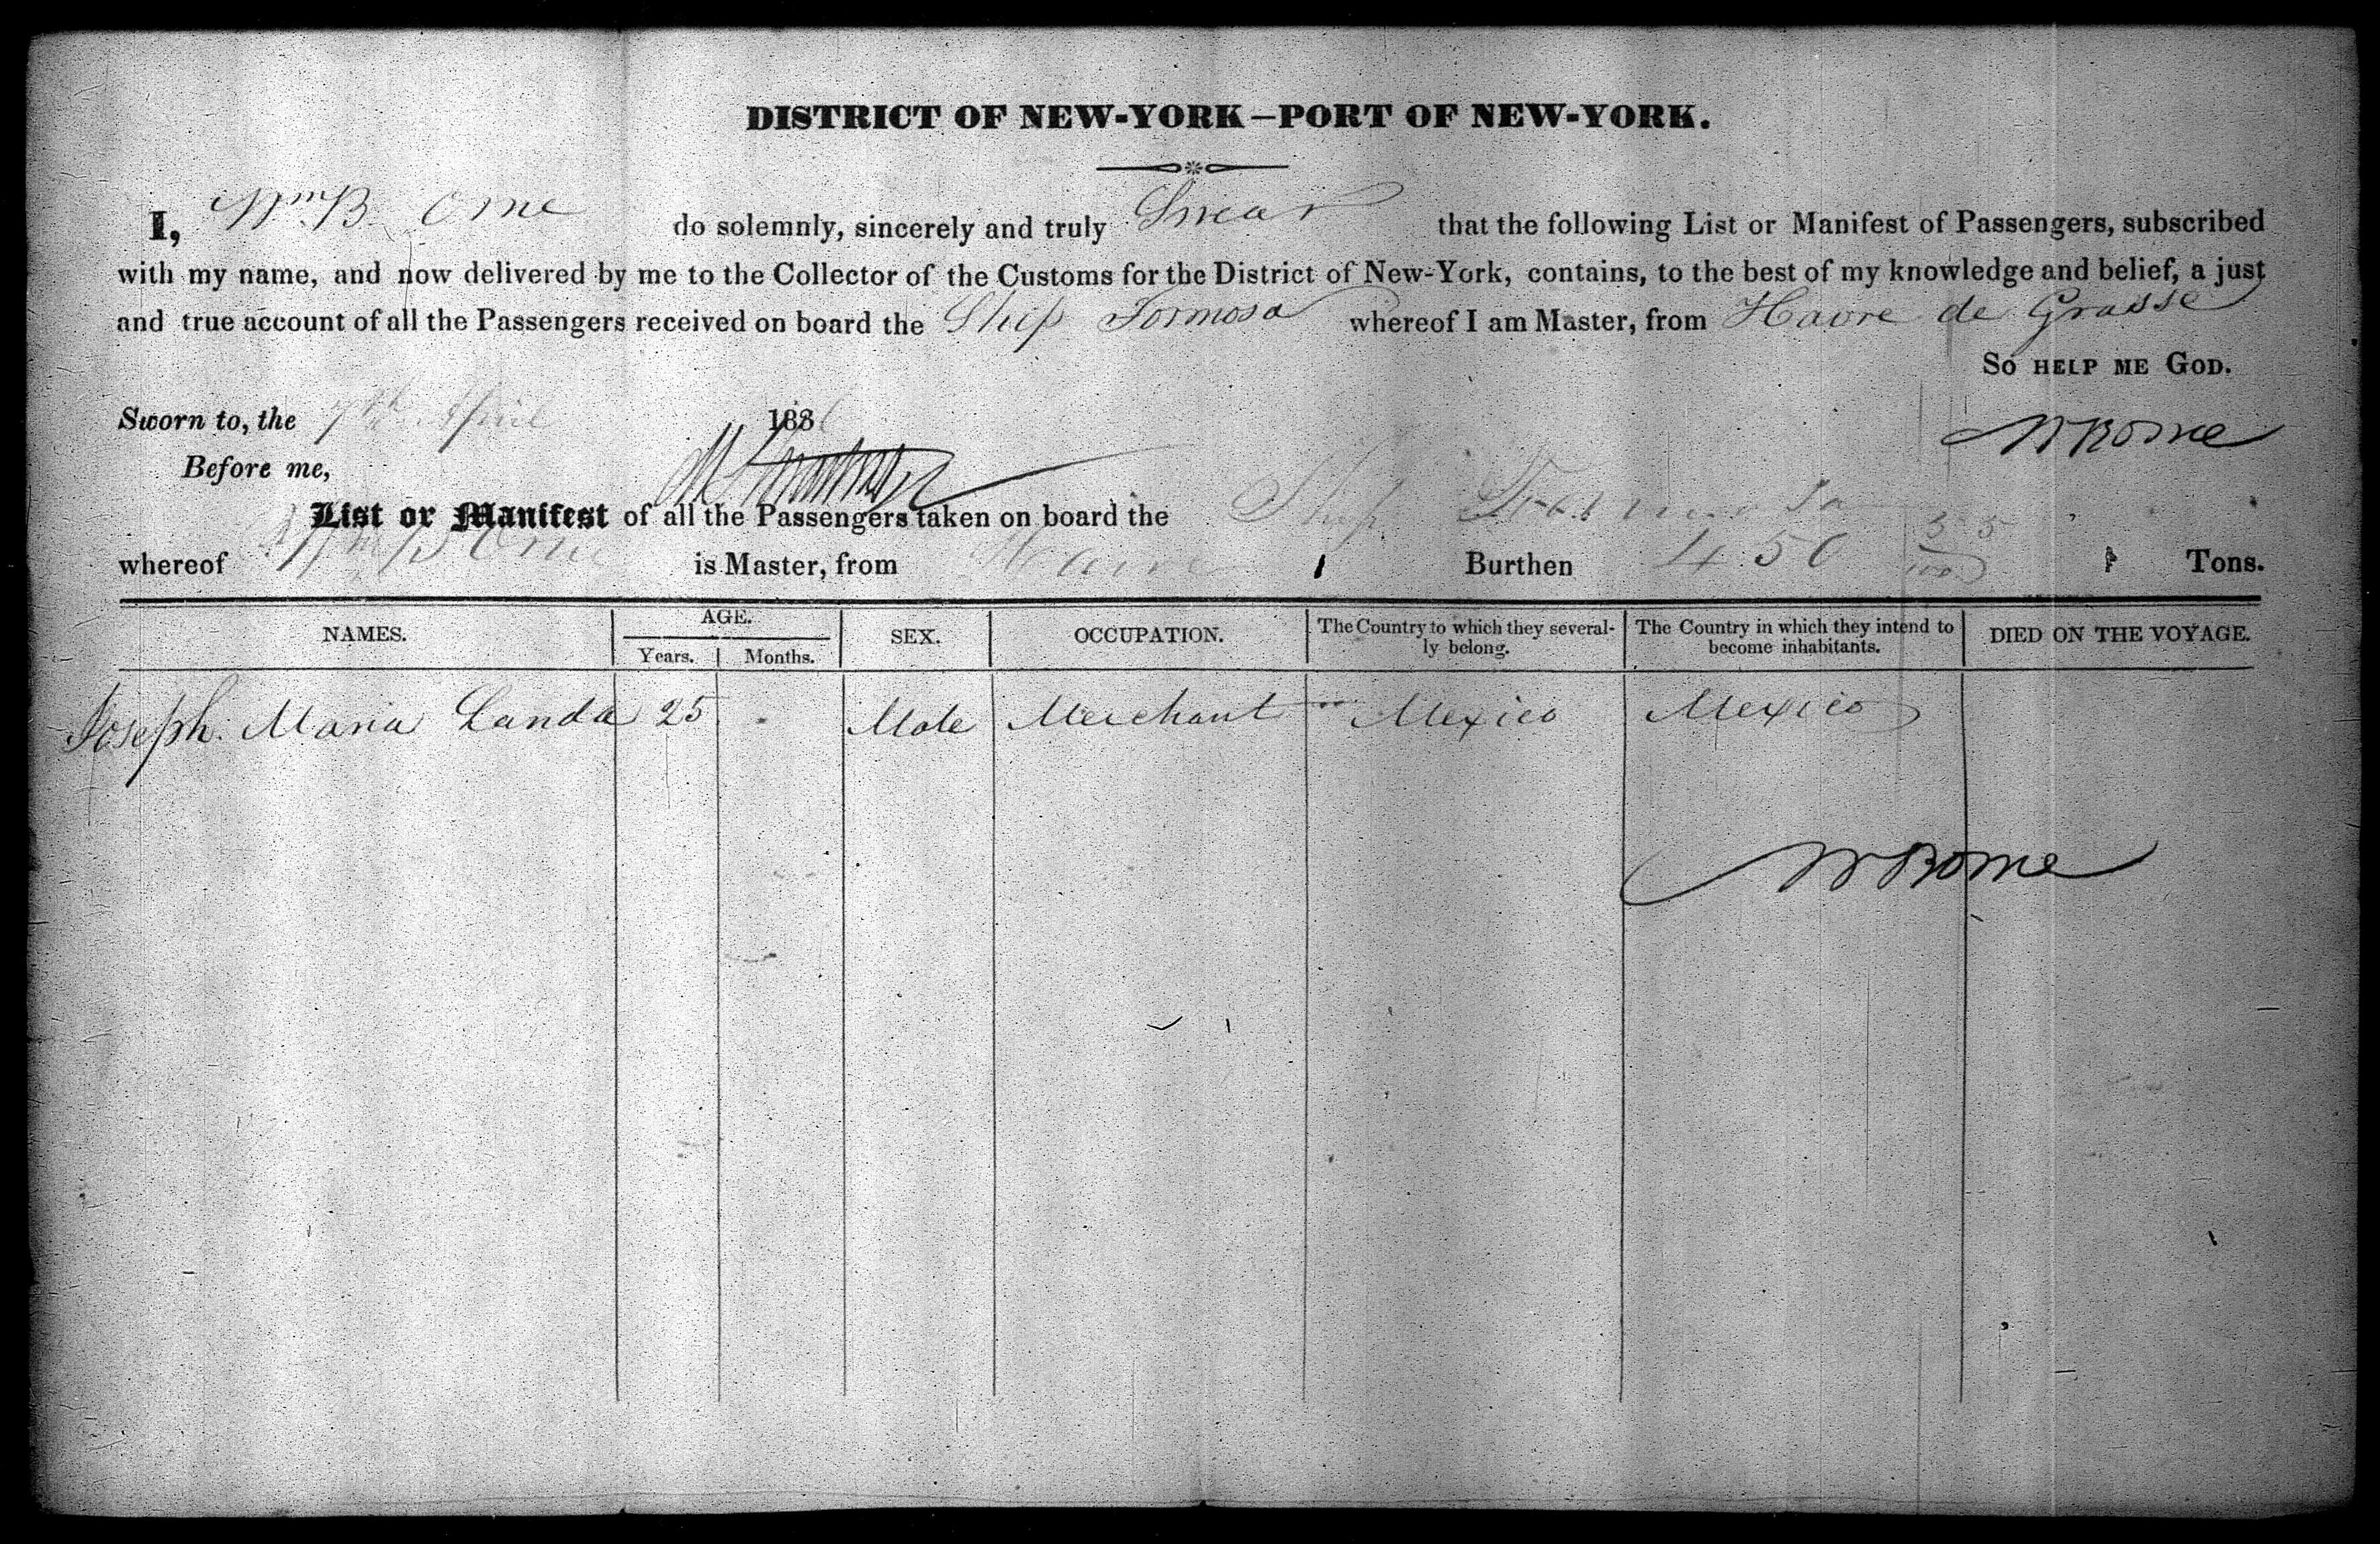 DISTRICT OF NEW-YORK—PORT OF NEW-YORK.
I, Wm B Orne do solemnly, sincerely and truly Swear that the following List or Manifest of Passengers, subscribed
with my name, and now delivered by me to the Collector of the Customs for the District of New-York, contains, to the best of my knowledge and belief, a just
and true account of all the Passengers received on board the Ship Formosa whereof I am Master, from Havre de Grasse
SO HELP ME GOD.
Sworn to, the 7th April 1836
W B Orne
Before me,
List or Manifest of all the Passengers taken on board the Ship Formosa
whereof Wm B Orne is Master, from Havre Burthen 450 Tons.
NAMES. AGE. SEX. OCCUPATION. The Country to which they severally belong. The Country in which they intend to become inhabitants. DIED ON THE VOYAGE.
Years. Months.
Joseph Maria Landa 25 Male Merchant Mexico Mexico
W B Orne